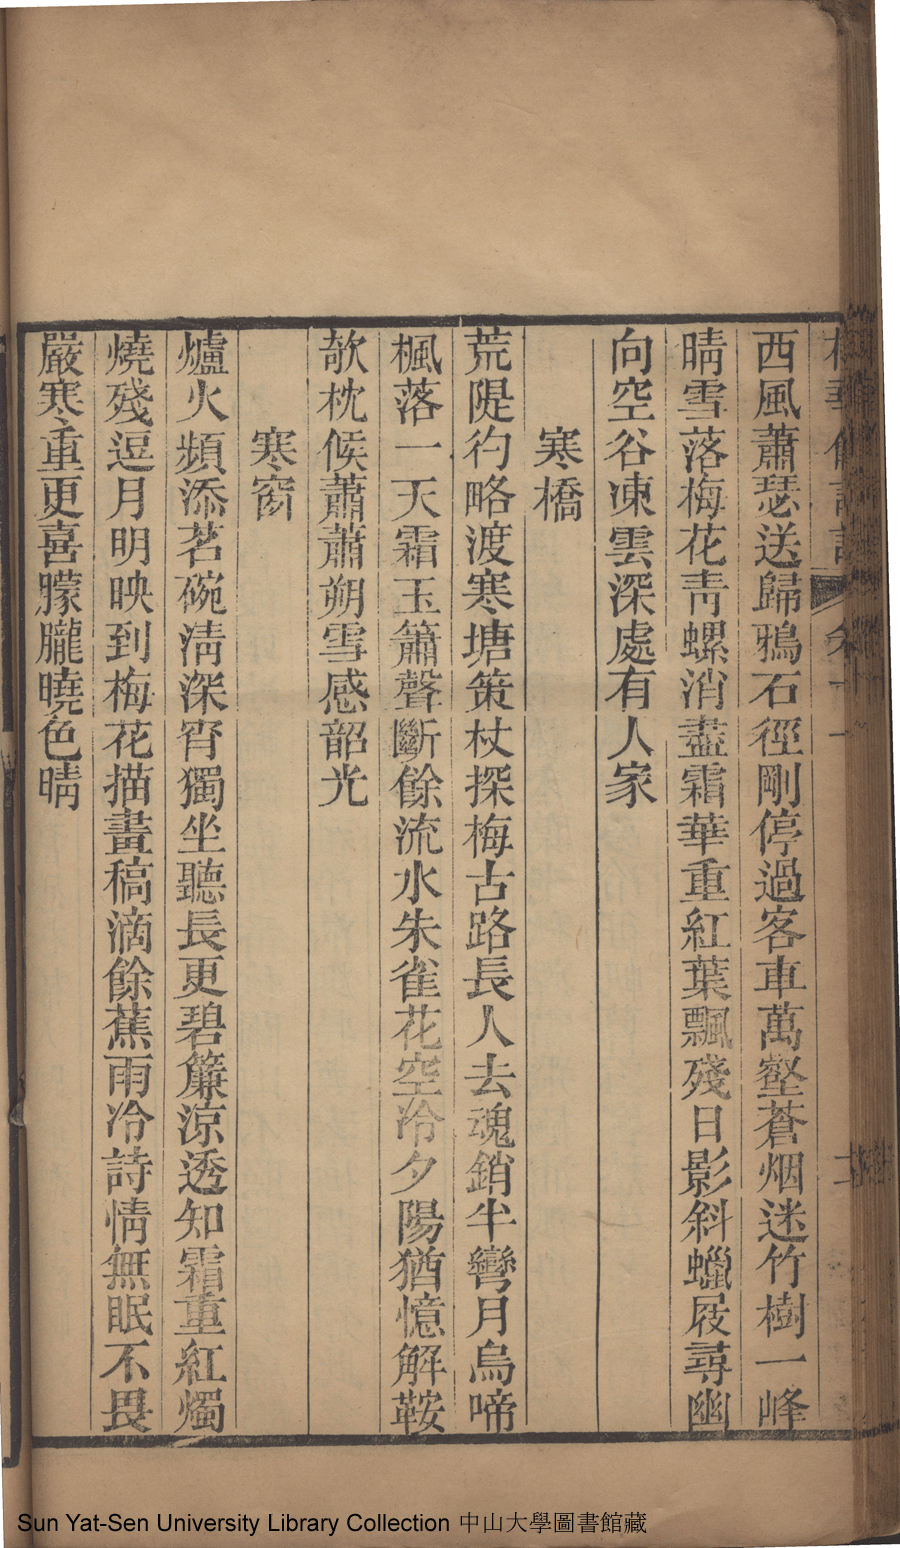 西風蕭瑟送歸鴉石徑剛停過客車萬壑蒼烟迷竹樹一峰
晴雪落梅花靑螺消盡霜華重紅葉飄殘日影斜蠟屐尋幽
向空谷凍雲深處有人家
寒橋
荒隄彴略渡寒塘策杖探梅古路長人去魂銷半彎月烏啼
楓落一天霜玉簫聲斷餘流水朱雀花空冷夕陽猶憶解鞍
欹枕候蕭蕭朔雪感韶光
寒窗
爐火頻添茗碗淸深宵獨坐聽長更碧簾涼透知霜重紅燭
燒殘逗月明映到梅花描畫稿滴餘蕉雨冷詩情無眠不畏
嚴寒重更喜朦朧曉色晴
Sun Yat-Sen University Library Collection 中山大學圖書館藏